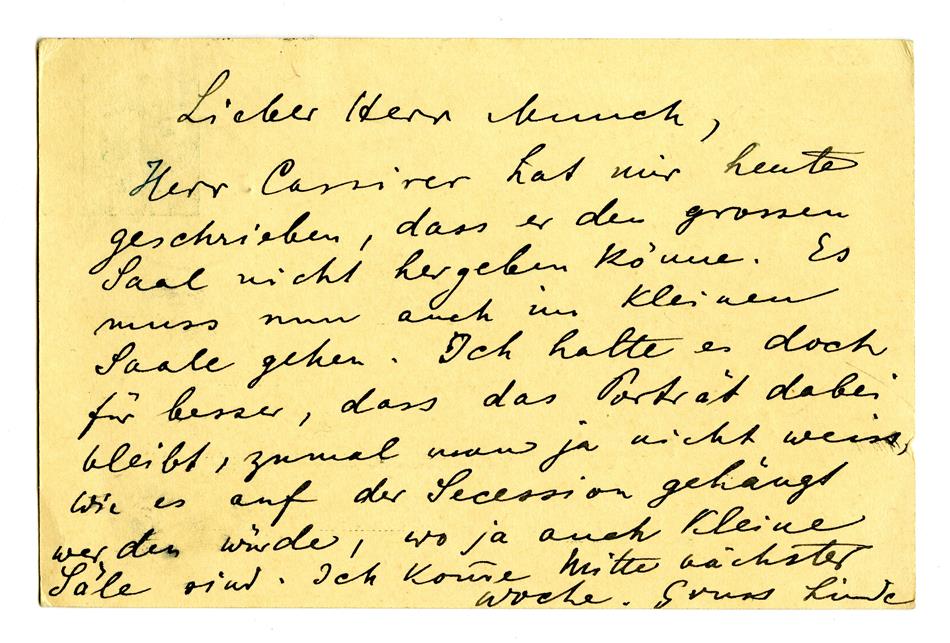 Lieber Herr Munch,
Herr Cassirer hat mir heute
geschrieben, dass er den grossen
Saal nicht hergeben könne. Es
muss nun auch im kleinen
Saale gehen. Ich halte es doch
für besser, dass das Porträt dabei
bleibt, zumal man ja nicht weiss,
wie es auf der Secession gehängt
werden würde, wo ja auch kleine
Säle sind. Ich kom̅e Mitte nächster
Woche. Gruss Linde